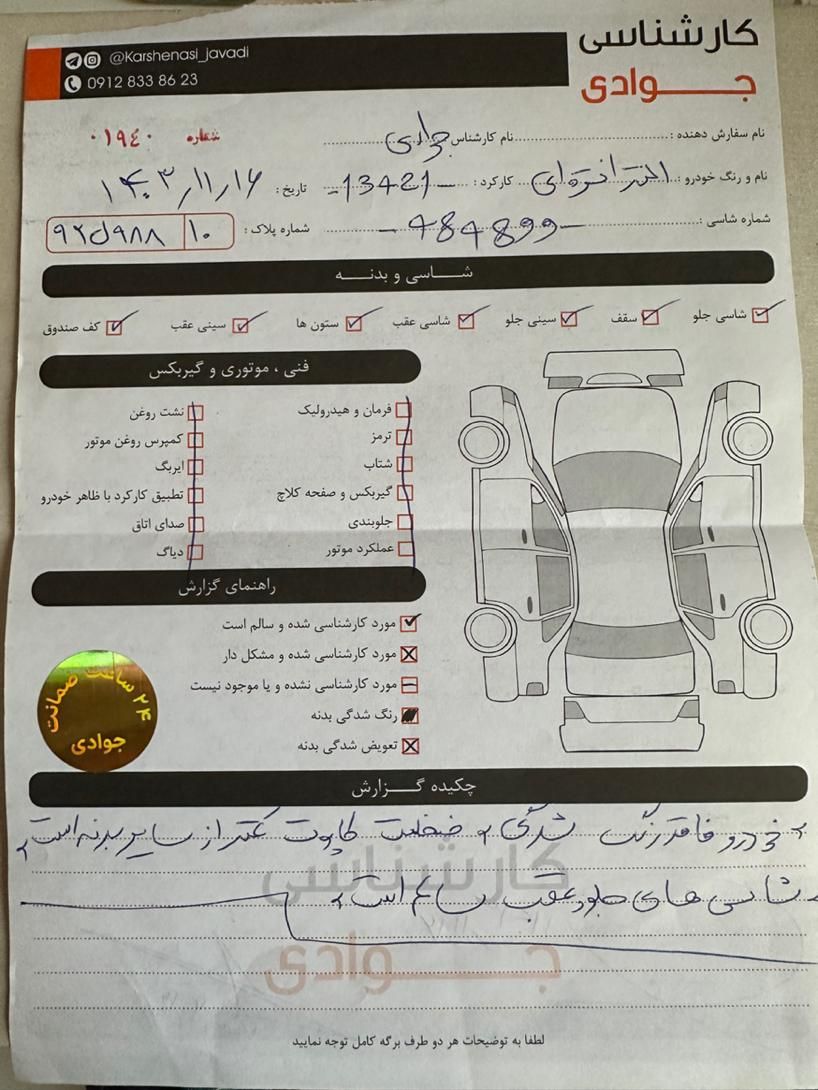 کارشناسی
جوادی
@Karshenasi_javadi
0912 833 86 23
نام سفارش دهنده : نام کارشناس جوادی شماره ۰۱۹۴۰
نام و رنگ خودرو : النترا نقره‌ای کارکرد : -13421- تاریخ : ۱۴۰۳/۱۱/۱۶
شماره شاسی : شماره پلاک : ۱۰
شاسی و بدنه
شاسی جلو سقف سینی جلو شاسی عقب ستون ها سینی عقب کف صندوق
فنی ، موتوری و گیربکس
فرمان و هیدرولیک نشت روغن
ترمز کمپرس روغن موتور
شتاب ایربگ
گیربکس و صفحه کلاچ تطبیق کارکرد با ظاهر خودرو
جلوبندی صدای اتاق
عملکرد موتور دیاگ
راهنمای گزارش
مورد کارشناسی شده و سالم است
مورد کارشناسی شده و مشکل دار
مورد کارشناسی نشده و یا موجود نیست
رنگ شدگی بدنه
تعویض شدگی بدنه
۲۴ ساعت ضمانت
جوادی
چکیده گزارش
خودرو فاقد رنگ شدگی ضخامت کاپوت کمتر از سایر بدنه است
شاسی های جلو و عقب سالم است
کارشناسی
جوادی
لطفا به توضیحات هر دو طرف برگه کامل توجه نمایید